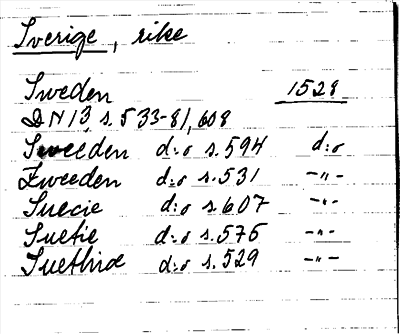 Sverige, rike
Sweden 1528
DN 13, s. 533-81, 608
Sweeden d:o s. 594 d:o
Zweeden d:o s. 531 -"-
Suecie d:o s. 607 -"-
Suetie d:o s. 575 -"-
Suethrice d:o s. 529 -"-